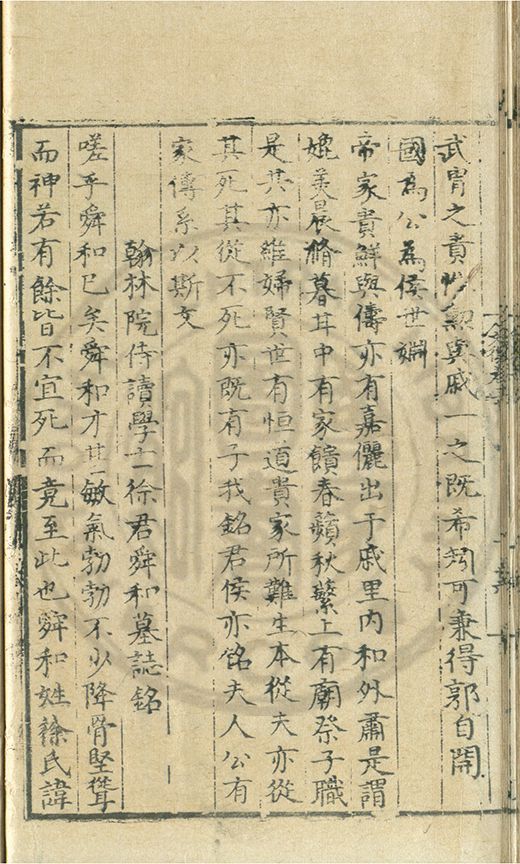 武胄之貴惟勲與戚一之既希矧可兼得郭自開
國為公為侯世姻
帝家貴鮮與儔亦有嘉儷出于戚里内和外肅是謂
媲美晨脩暮耳中有家饋春蘋秋蘩上有廟祭子職
是共亦維婦賢世有恒道貴家所難生本從夫亦從
其死其從不死亦既有子我銘君侯亦銘夫人公有
家傳系以斯文
翰林院侍讀學士徐君舜和墓誌銘
嗟乎舜和已矣舜和才甚敏氣勃勃不少降骨堅聳
而神若有餘皆不宜死而竟至此也舜和姓徐氏諱